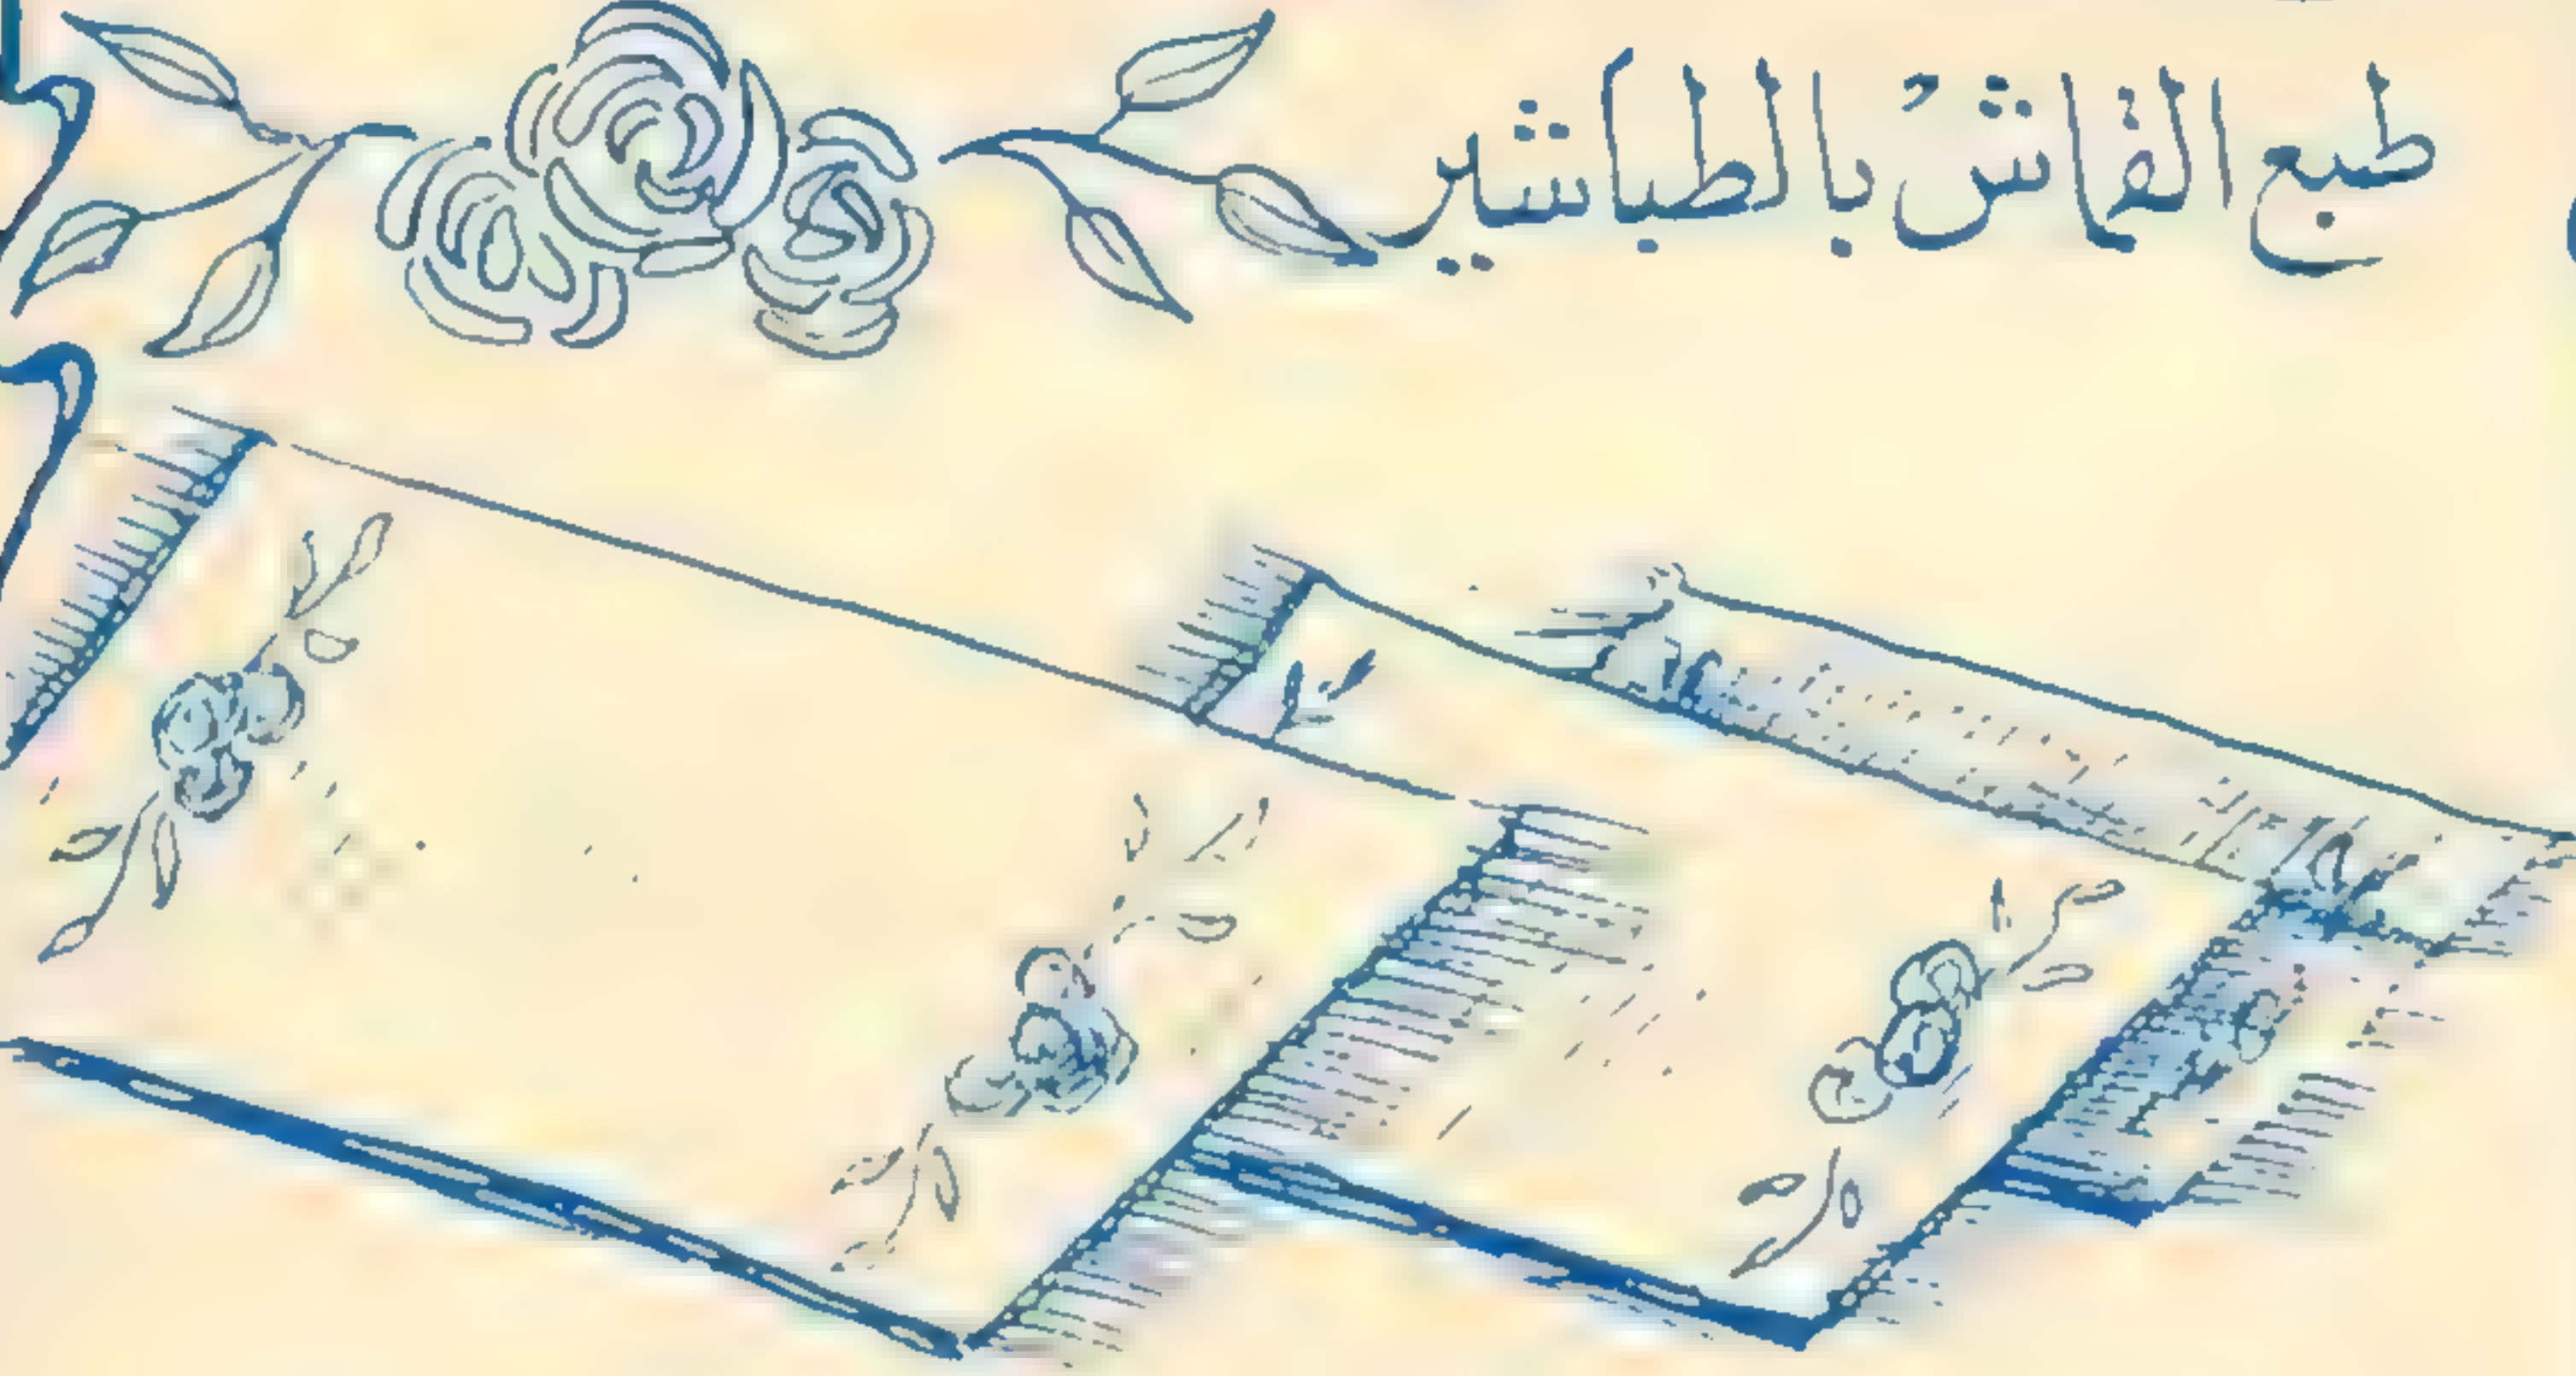 طبع القماش بالطباشير